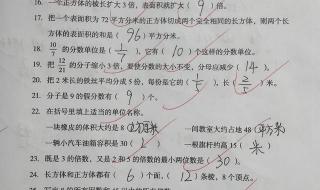 16. 一个正方体的棱长扩大3倍,表面积就扩大( 9 )倍。
17. 把一个表面积为72平方分米的正方体切成两个完全相同的长方体,则两个长
方体的表面积的和是( 96 )平方分米。
18. 10/7的分数单位是( 1/7 ),它有( 10 )个这样的分数单位。
19. 把12/21的分子缩小3倍,要使分数的大小不变,分母应减少( 14 )。
20. 把2米长的铁丝平均分成5份,每份是它的( 1/5 ),长( 2/5 )米。
21. 分子是9的假分数有( 9 )个。
22. 在括号里填上适当的单位名称。
一块橡皮的体积大约是8( 立方厘米 ) 一间教室大约占地48( 平方米 )
一辆小汽车油箱容积是30( ) 一根旗杆约高15( 米 )
23. 既是3的倍数,又是2和5的倍数的最小两位数是( 30 )。
24. 长方体和正方体都有( 6 )个面,( 12 )条棱,8个顶点。